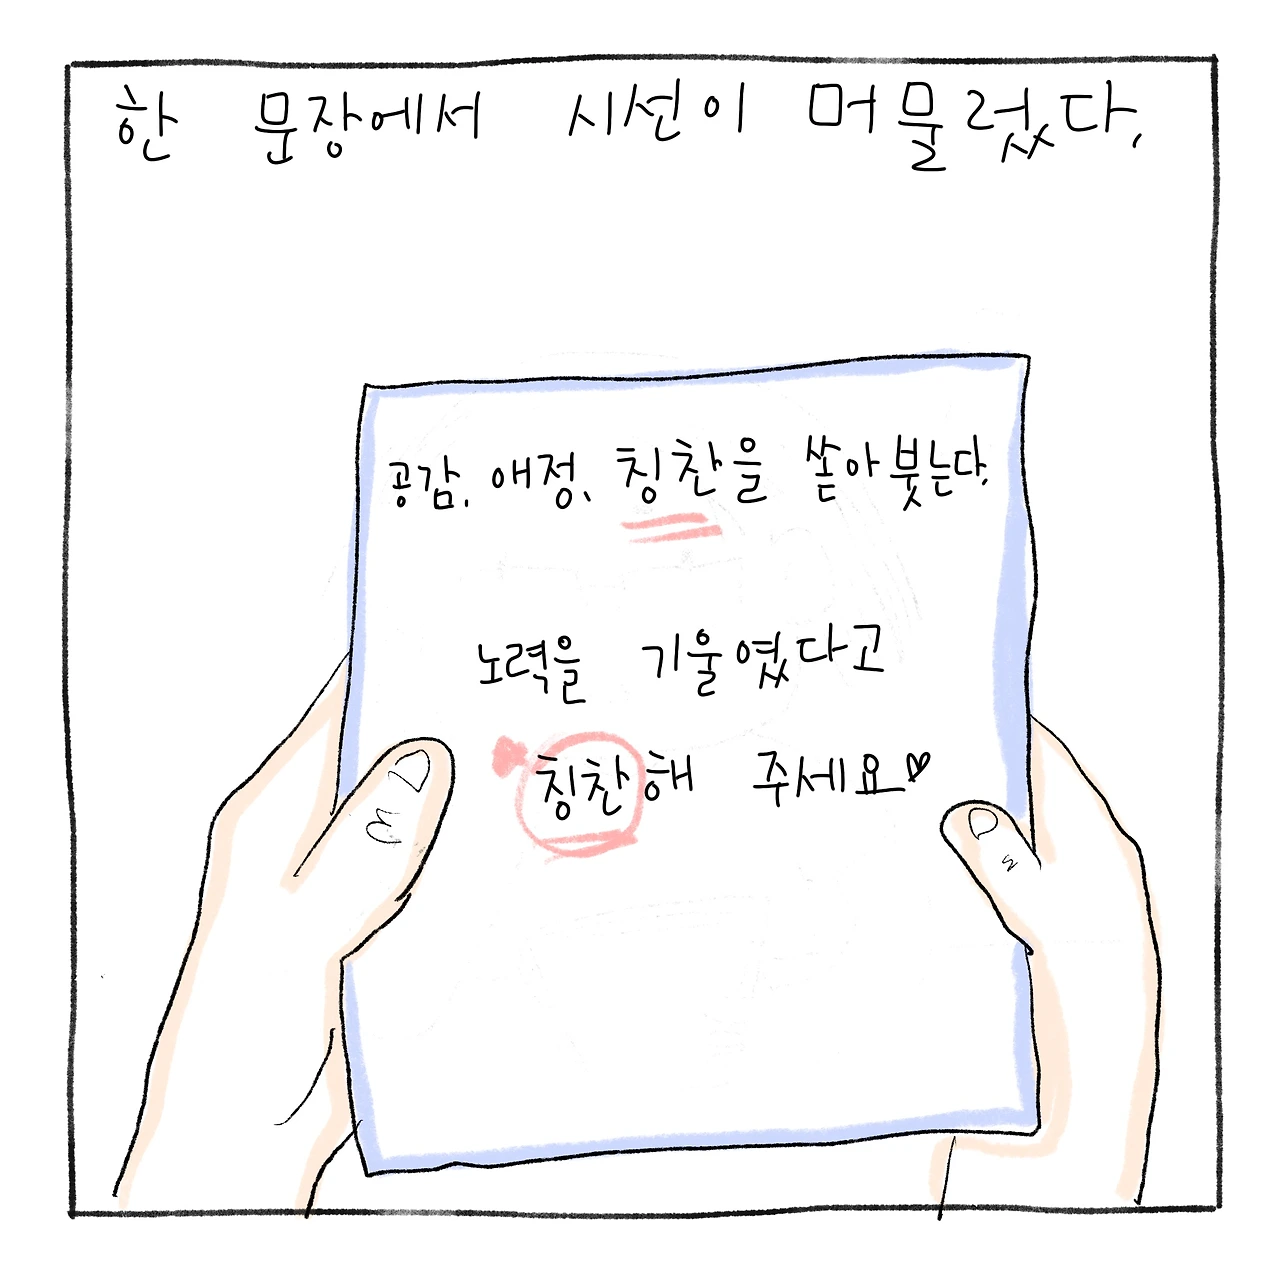 한 문장에서 시선이 머물렀다.
공감, 애정, 칭찬을 쏟아붓는다.
노력을 기울였다고
칭찬해 주세요♡